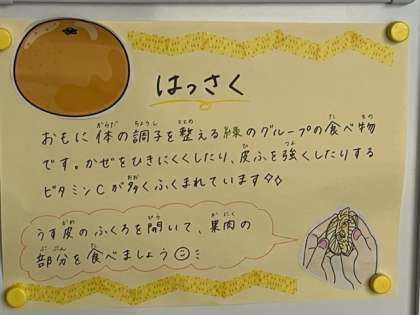 はっさく
おもに体の調子を整える緑のグループの食べ物
です。かぜをひきにくくしたり、皮ふを強くしたりする
ビタミンCが多くふくまれています☆◇
うす皮のふくろを開いて、果肉の
部分を食べましょう☺